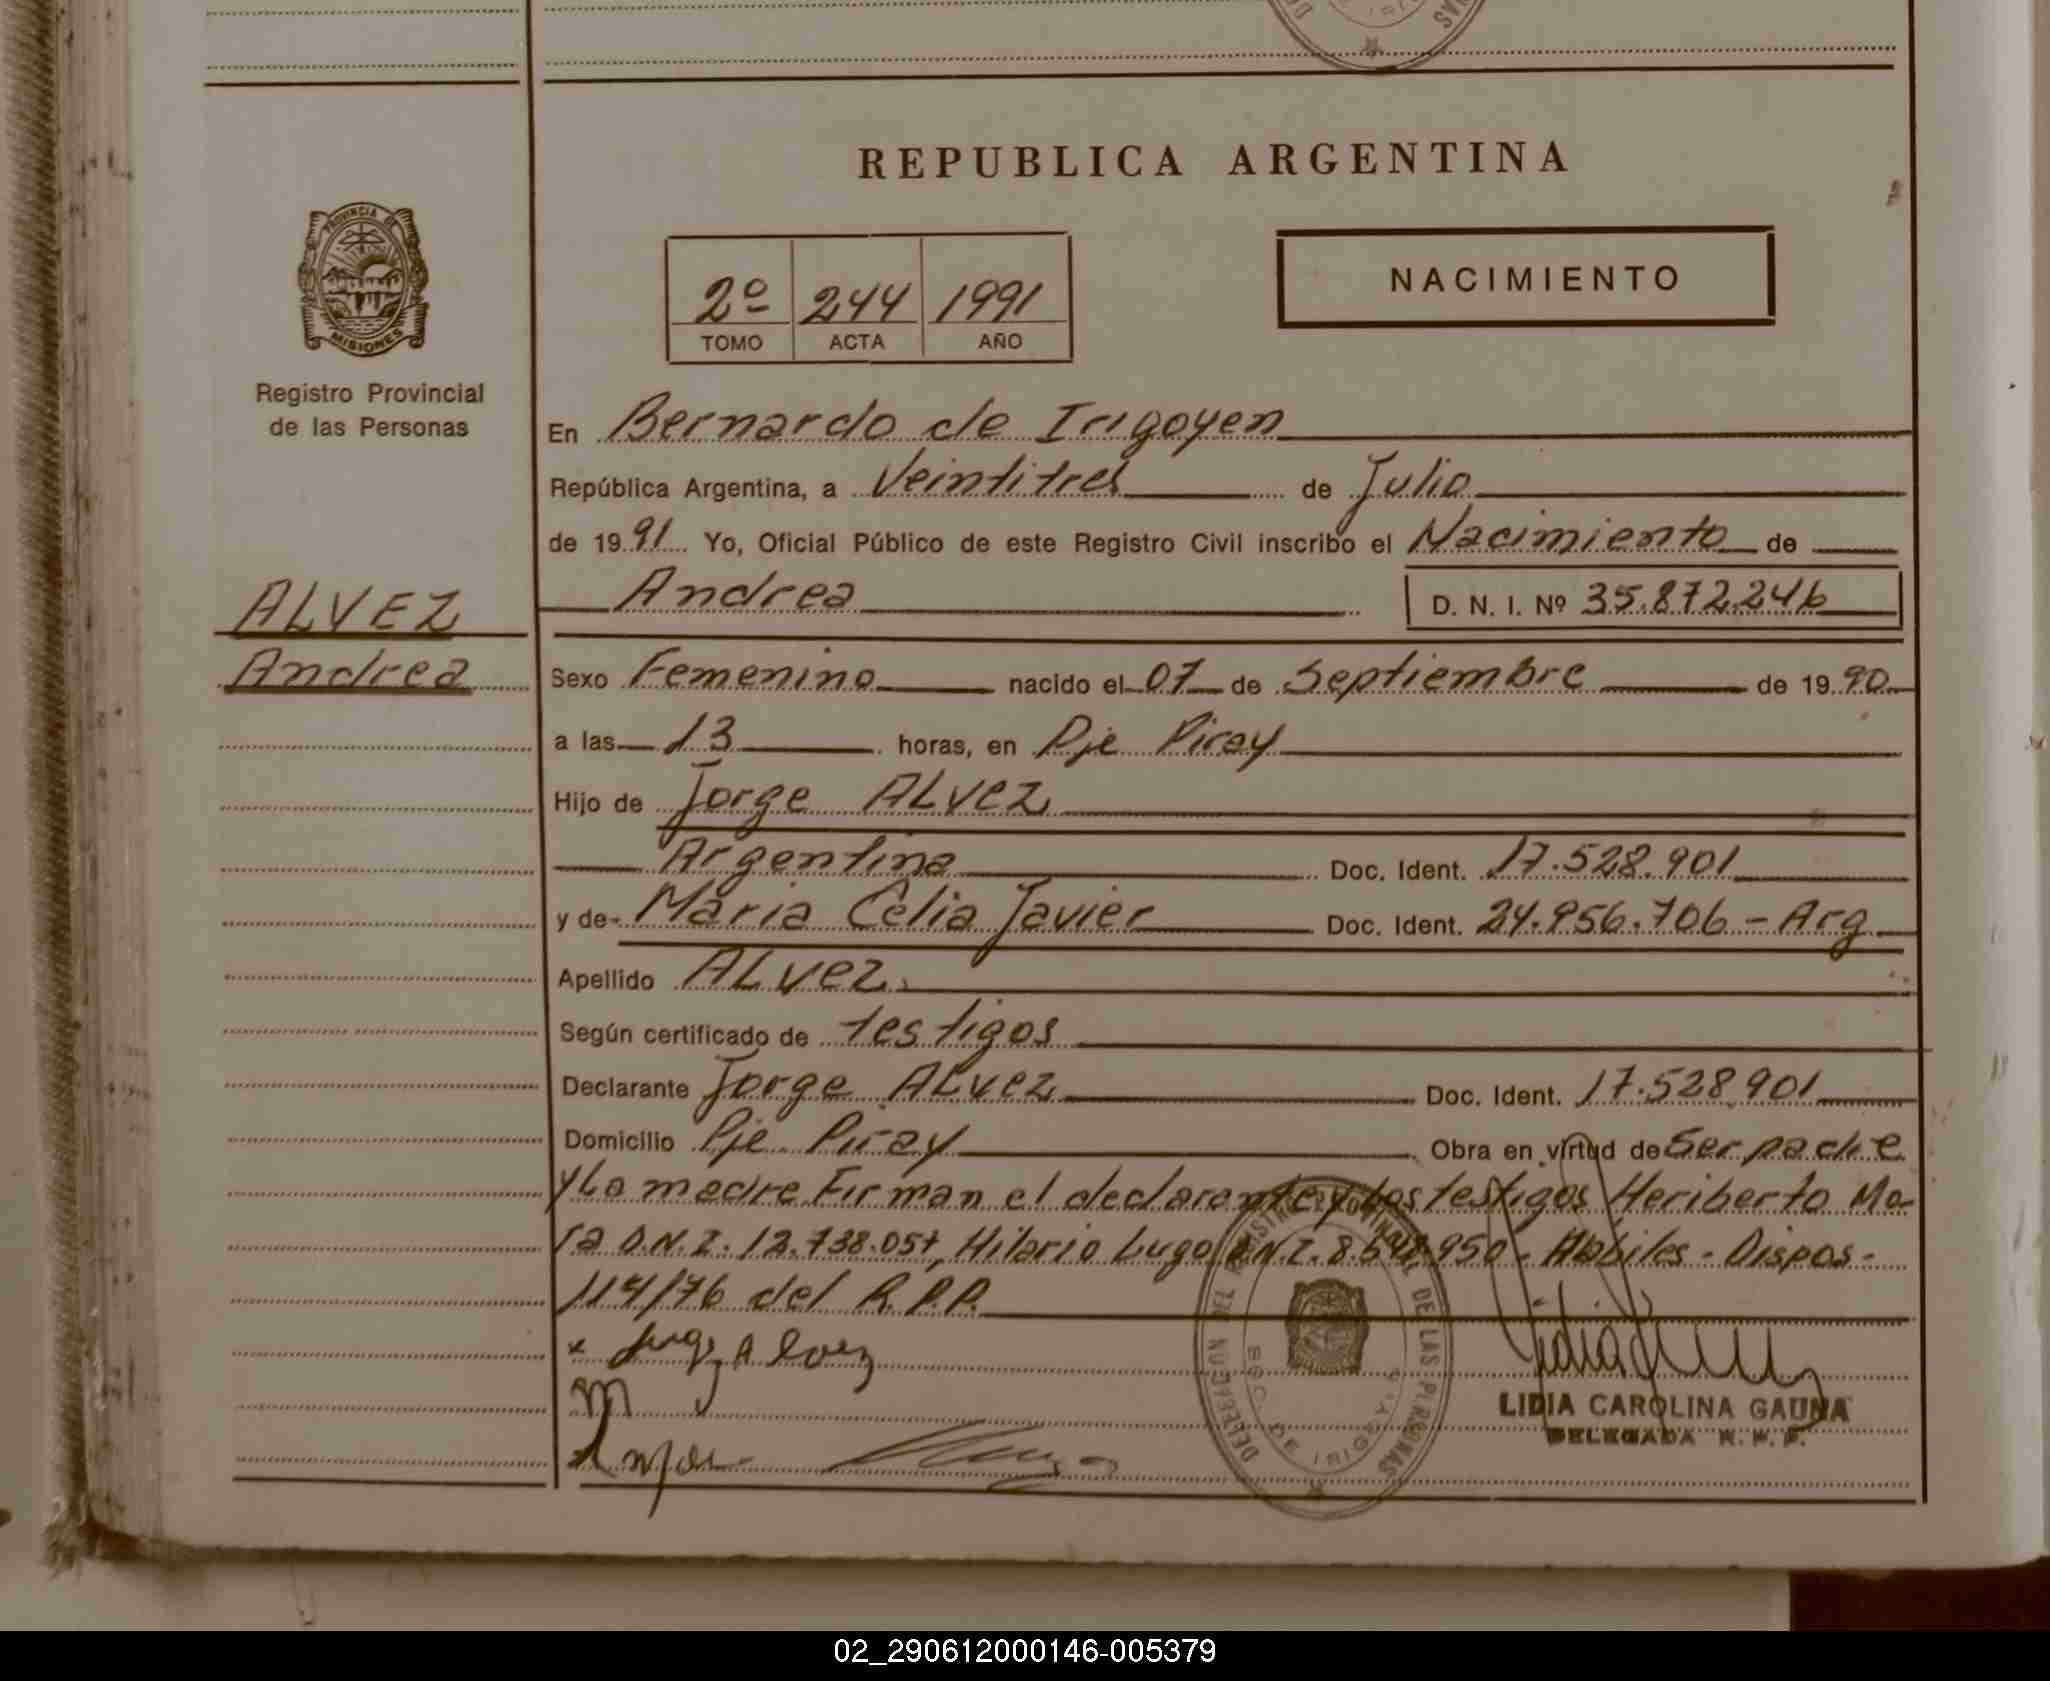 REPUBLICA ARGENTINA
PROVINCIA DE
MISIONES
Registro Provincial
de las Personas
2º 244 1991
TOMO ACTA AÑO
NACIMIENTO
ALVEZ
Andrea
En Bernardo de Irigoyen
República Argentina, a Veintitres de Julio
de 1991 Yo, Oficial Público de este Registro Civil inscribo el Nacimiento de
Andrea D. N. I. Nº 35.872.246
Sexo Femenino nacido el 07 de Septiembre de 1990
a las 13 horas, en Pje Piray
Hijo de Jorge ALVEZ
Argentina Doc. Ident. 17.528.901
y de Maria Celia Javier Doc. Ident. 24.956.706 - Arg
Apellido ALVEZ
Según certificado de testigos
Declarante Jorge ALVEZ Doc. Ident. 17.528.901
Domicilio Pje Piray Obra en virtud de Ser padre
y La madre Firman el declarante y Los testigos Heriberto Mo-
ra D.N.I. 12.738.057, Hilario Lugo D.N.I. 950 - Habiles - Dispos-
114/76 del R.P.P.
Alvez
LIDIA CAROLINA GAUNA
DELEGADA R. P. P.
DELEGACION DEL REGISTRO PROVINCIAL DE LAS PERSONAS
BDO. DE IRIGOYEN
02_290612000146-005379